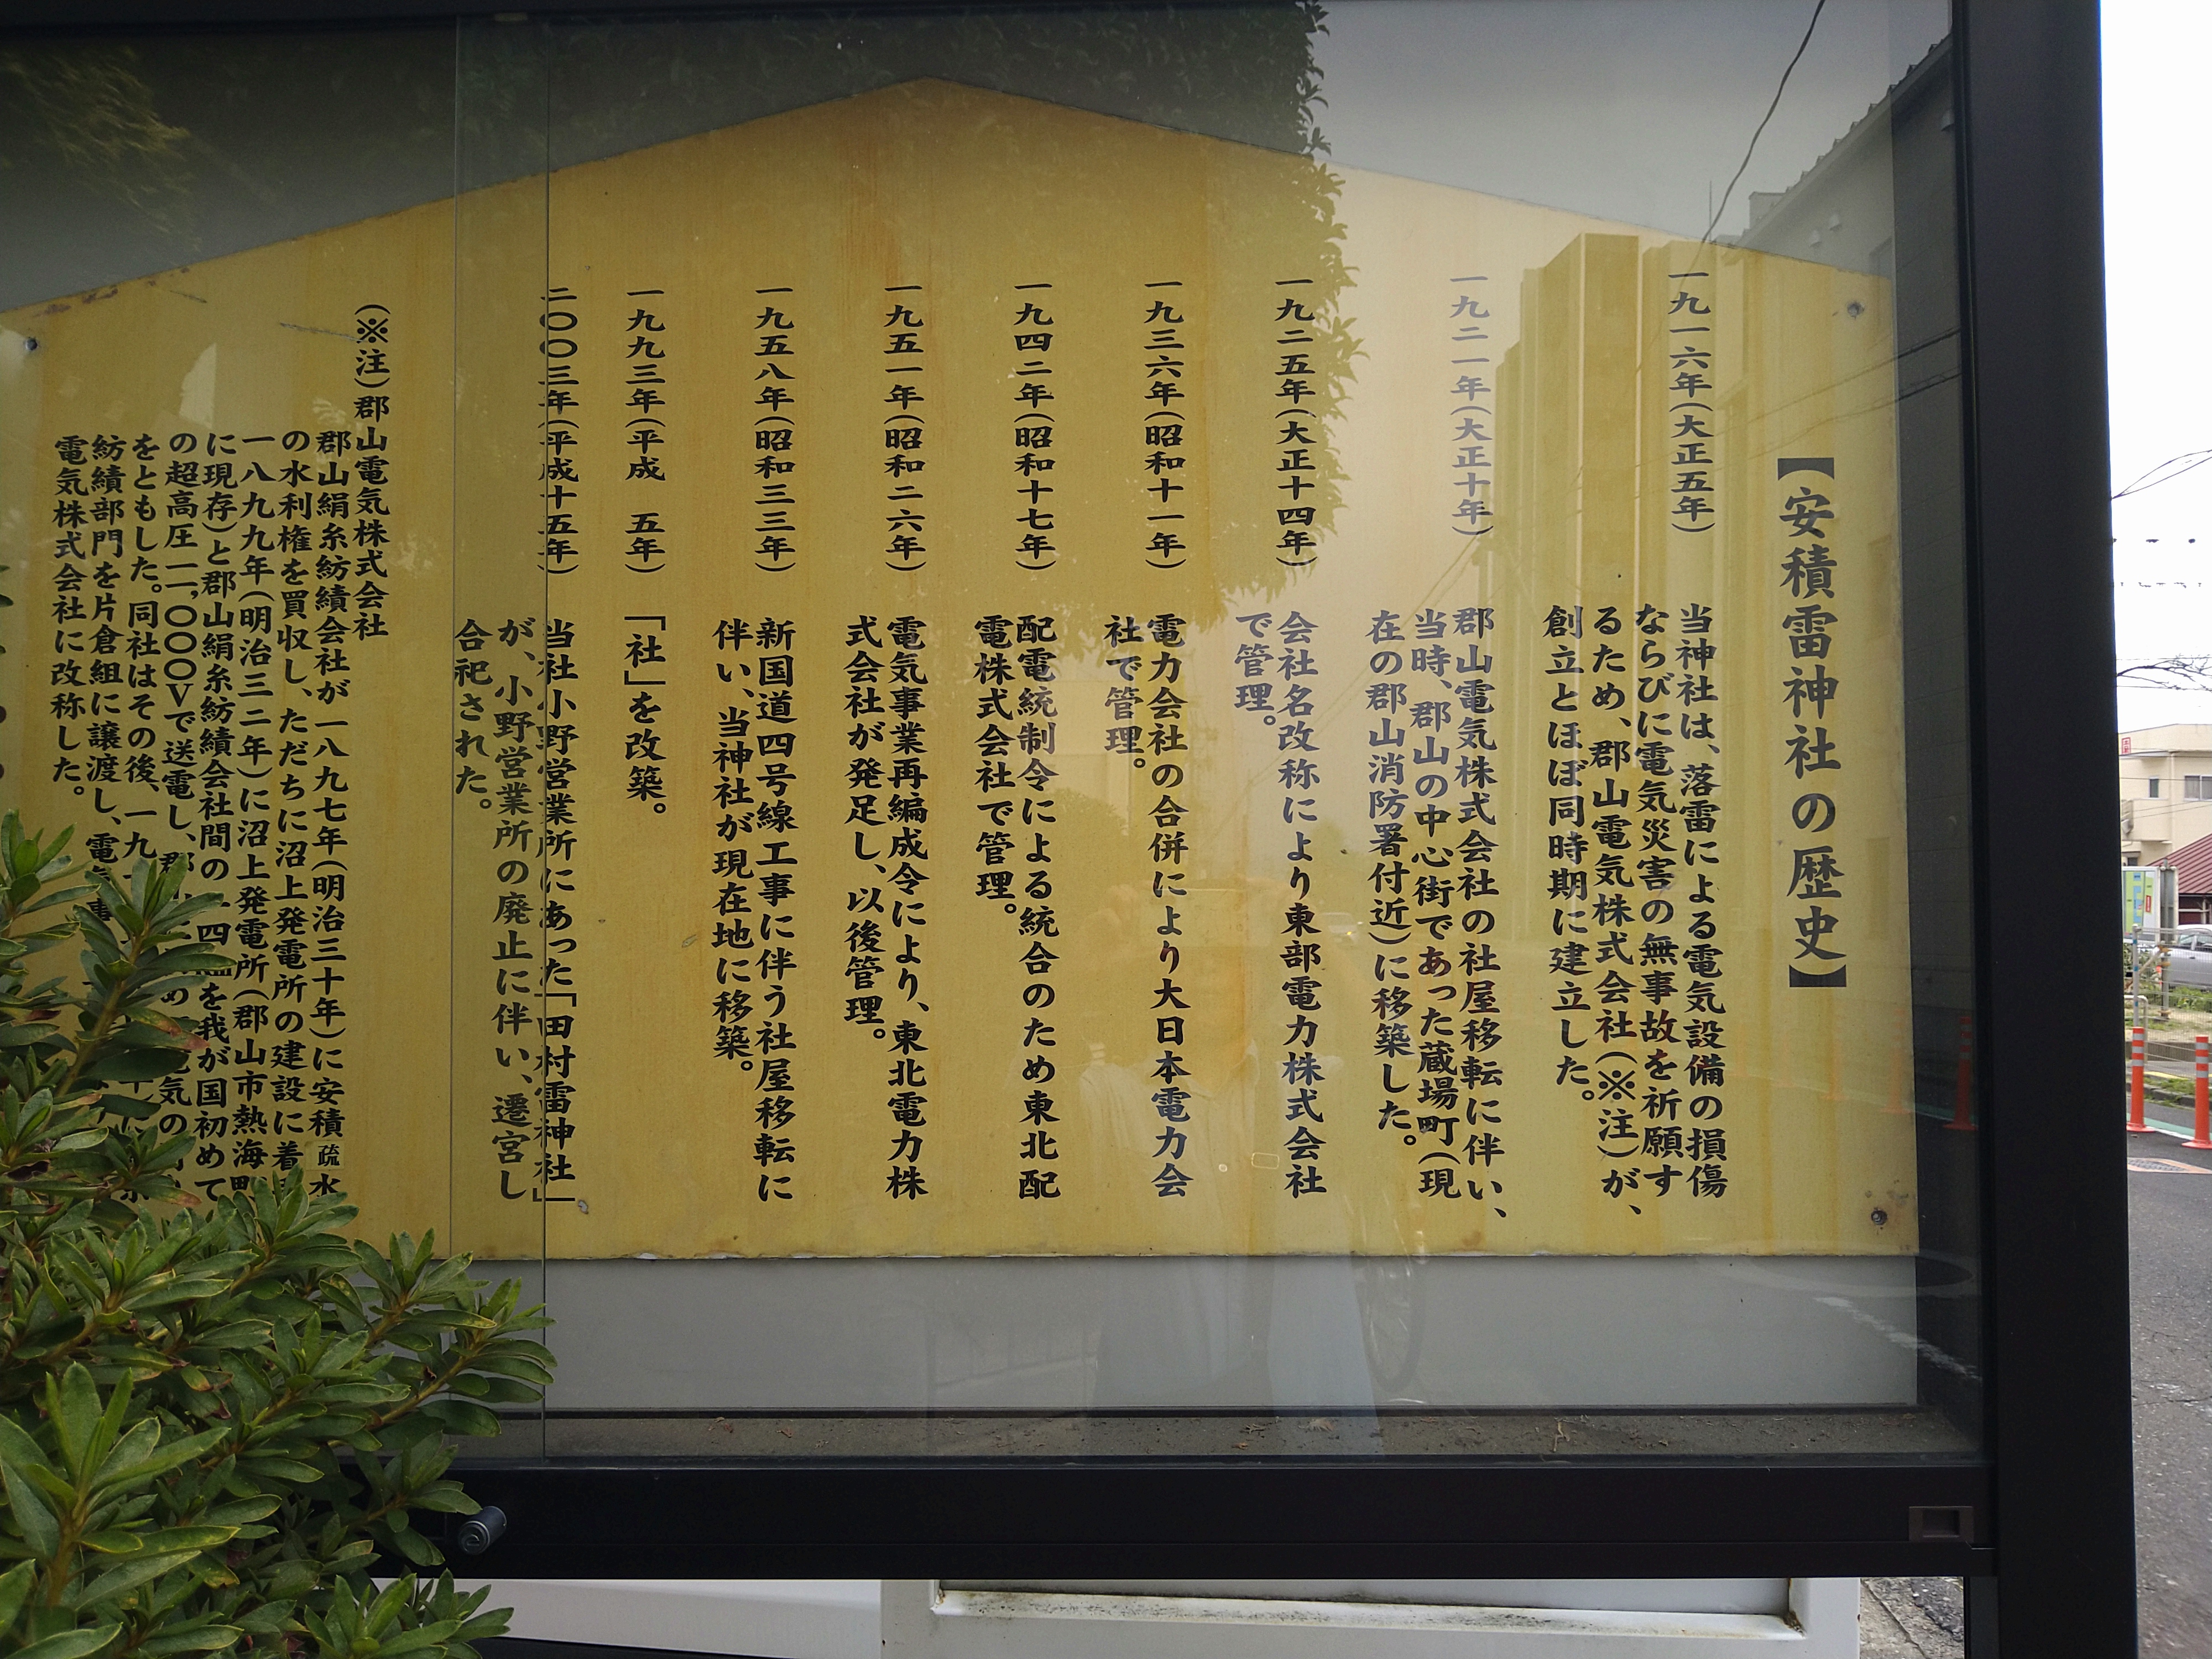 【安積雷神社の歴史】
一九一六年(大正五年)
当神社は、落雷による電気設備の損傷
ならびに電気災害の無事故を祈願す
るため、郡山電気株式会社(※注)が、
創立とほぼ同時期に建立した。
一九二一年(大正十年)
郡山電気株式会社の社屋移転に伴い、
当時、郡山の中心街であった蔵場町(現
在の郡山消防署付近)に移築した。
一九二五年(大正十四年)
会社名改称により東部電力株式会社
で管理。
一九三六年(昭和十一年)
電力会社の合併により大日本電力会
社で管理。
一九四二年(昭和十七年)
配電統制令による統合のため東北配
電株式会社で管理。
一九五一年(昭和二六年)
電気事業再編成令により、東北電力株
式会社が発足し、以後管理。
一九五八年(昭和三三年)
新国道四号線工事に伴う社屋移転に
伴い、当神社が現在地に移築。
一九九三年(平成 五年)
「社」を改築。
二〇〇三年(平成十五年)
当社小野営業所にあった「田村雷神社」
が、小野営業所の廃止に伴い、遷宮し
合祀された。
(※注)郡山電気株式会社
郡山絹糸紡績会社が一八九七年(明治三十年)に安積疏水
の水利権を買収し、ただちに沼上発電所の建設に着
一八九九年(明治三二年)に沼上発電所(郡山市熱海町
に現存)と郡山絹糸紡績会社間の 四 を我が国初めて
の超高圧一一,〇〇〇Vで送電し、郡 電気の
をともした。同社はその後、一九
紡績部門を片倉組に譲渡し、電気事
電気株式会社に改称した。